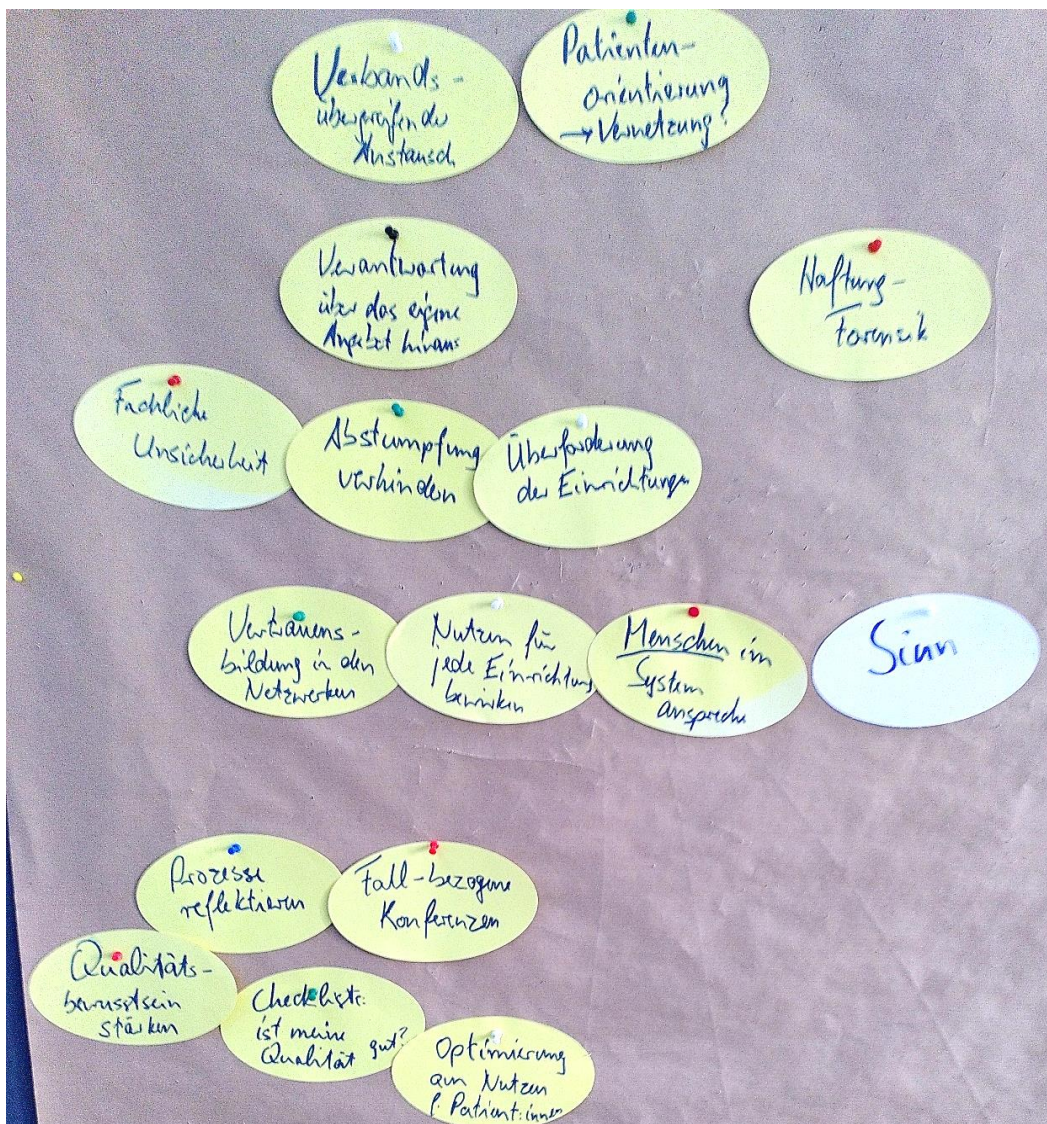 Verbands-
übergreifender
Austausch
Patienten-
orientierung
→ Vernetzung?
Verantwortung
über das eigene
Angebot hinaus
Haftung-
Forensik
Fachliche
Unsicherheit
Abstumpfung
verhindern
Überforderung
der Einrichtungen
Vertrauens-
bildung in den
Netzwerken
Nutzen für
jede Einrichtung
bewirken
Menschen im
System
ansprechen
Sinn
Prozesse
reflektieren
Fall-bezogene
Konferenzen
Qualitäts-
bewusstsein
stärken
Checkliste:
ist meine
Qualität gut?
Optimierung
am Nutzen
f. Patient:innen